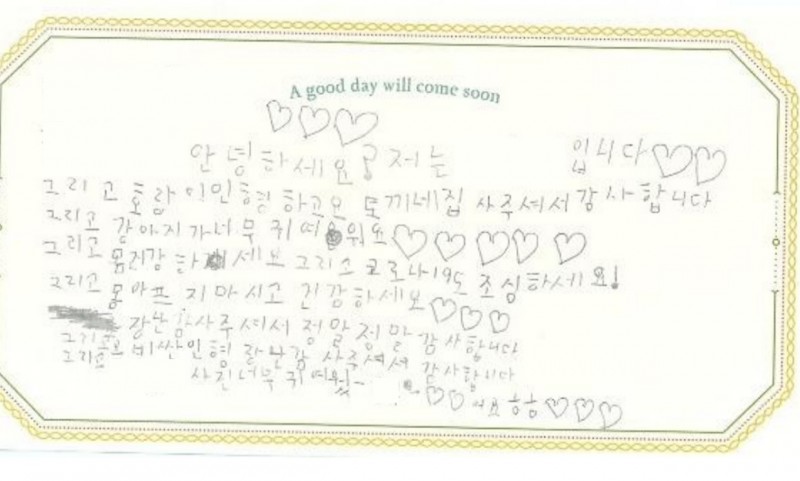 A good day will come soon
♡♡♡
안녕하세요? 저는 입니다♡♡
그리고 호랑이인형하고요 토끼네집 사주셔서 감사합니다
그리고 강아지가너무 귀여워요♡♡♡♡♡
그리고 몸건강하세요 그리고 코로나19도 조심하세요!
그리고 몸아프지마시고 건강하세요♡♡♡
장난감사주셔서 정말정말 감사합니다
그리고 비싼인형 장난감 사주셔서 감사합니다
그리고 사진너무귀여워
♡♡ ♡♡♡